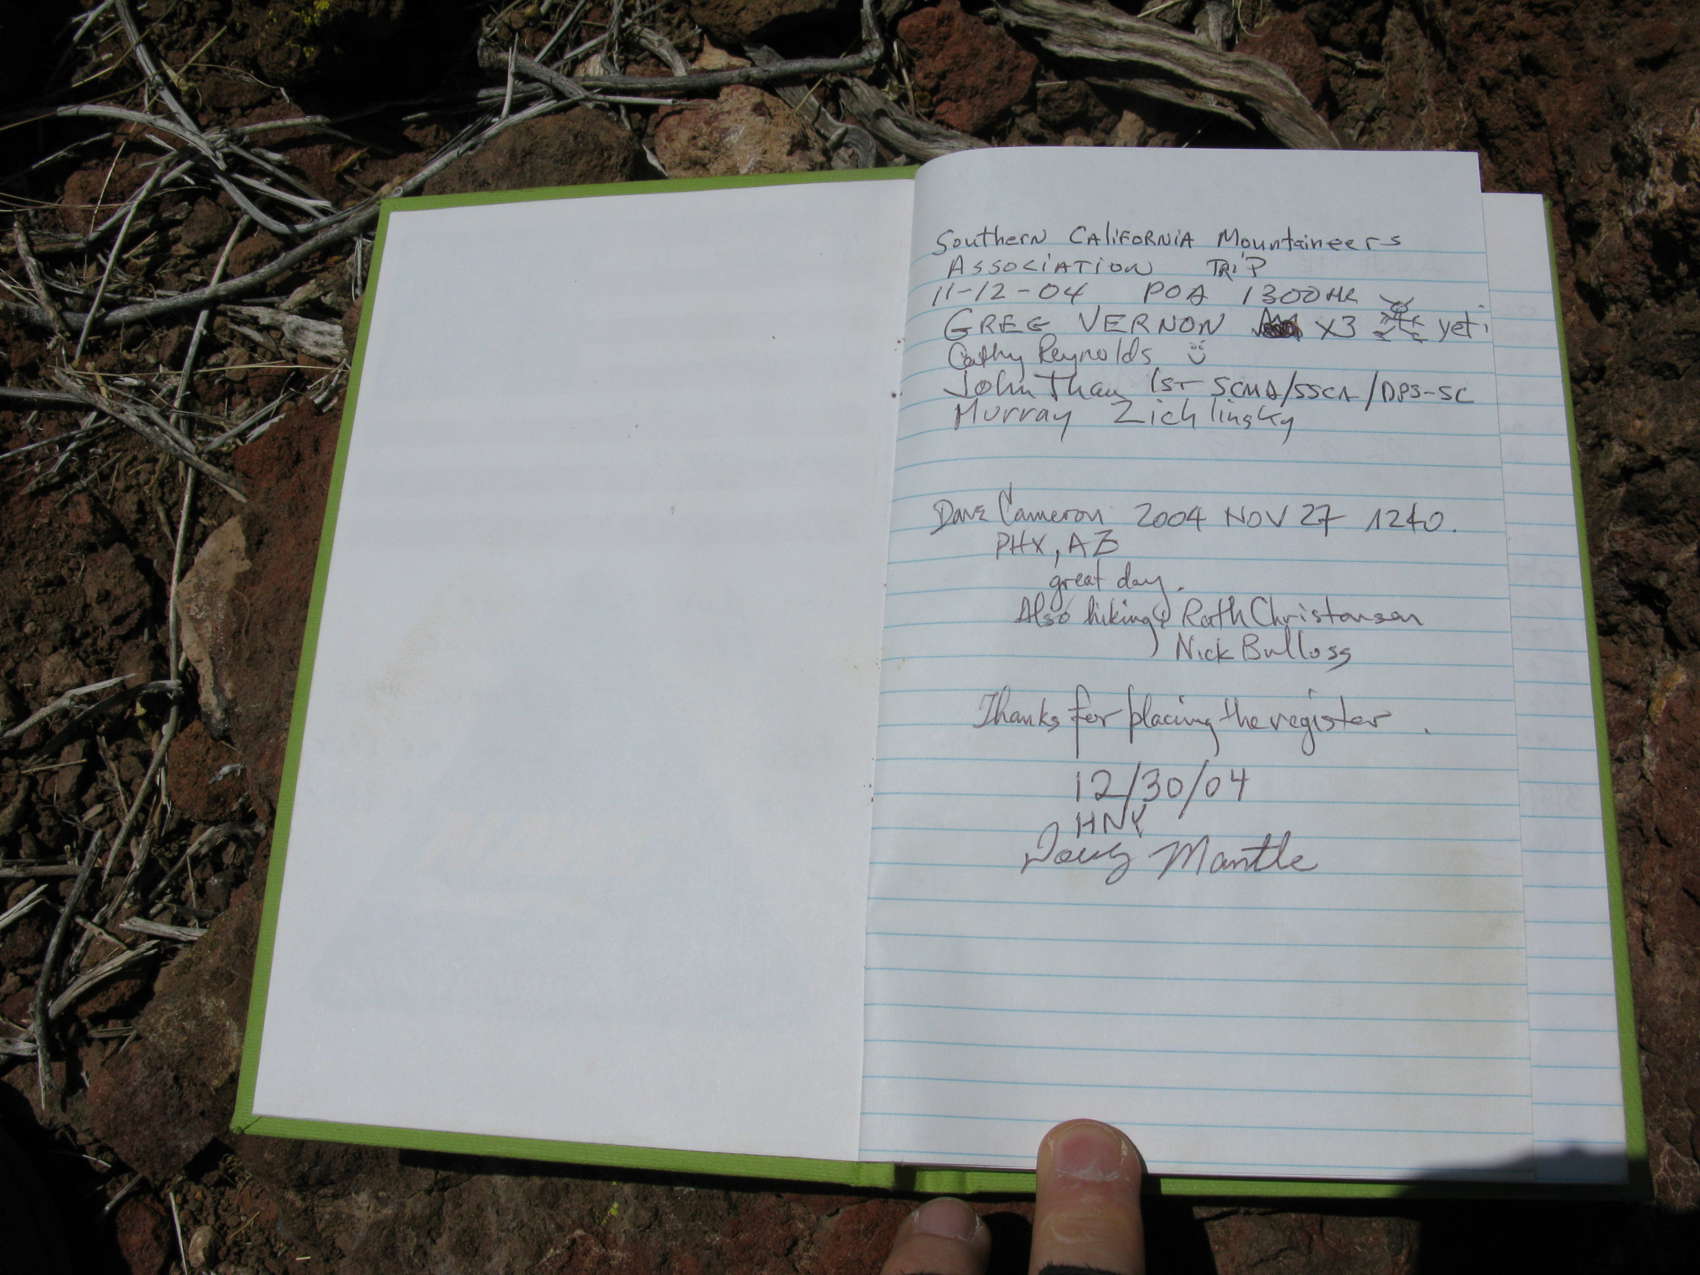 Southern CALIFORNIA Mountaineers
ASSOCIATION TRIP
11-12-04 POA 1300HR
GREG VERNON X3 yeti
Cathy Reynolds
John Thau 1ST SCMA/SSCA/DPS-SC
Murray Zichlinsky
Dave Cameron 2004 NOV 27 1240.
PHX, AZ
great day.
Also hiking Christensen
Nick Bulloss
Thanks for placing the register.
12/30/04
HNY
Doug Mantle